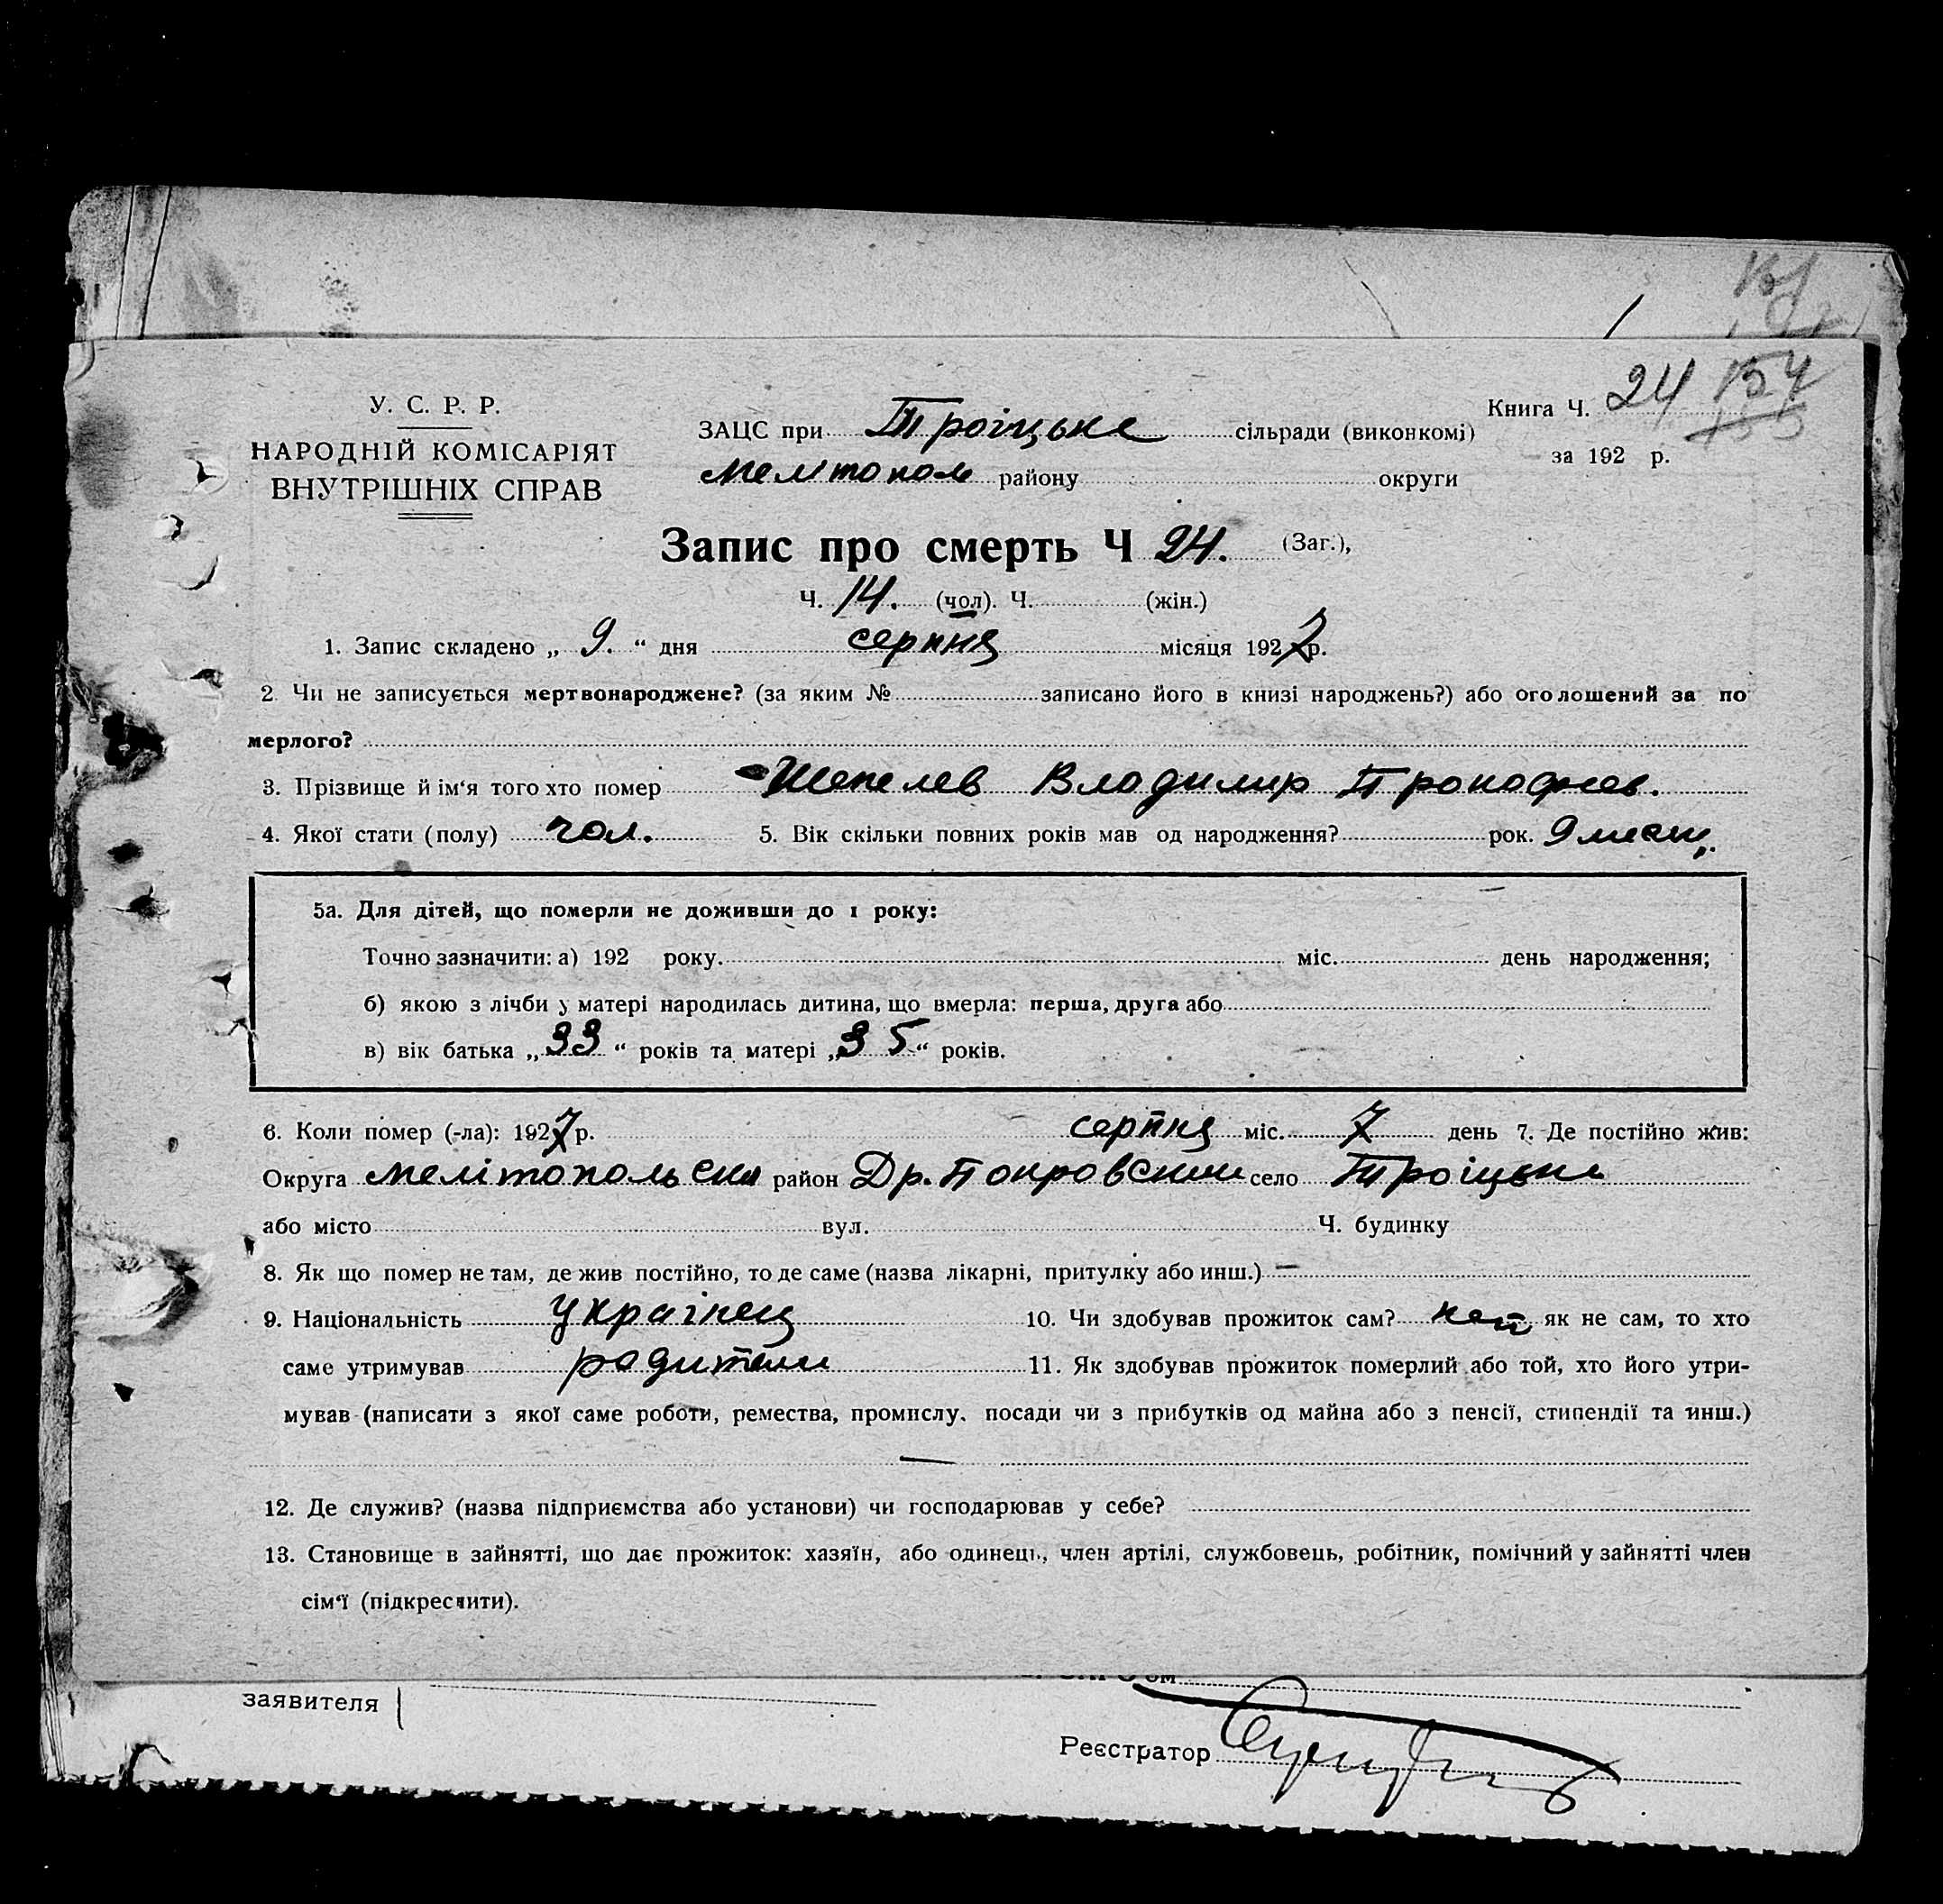 У. С. Р. Р.
НАРОДНІЙ КОМІСАРІЯТ
ВНУТРІШНІХ СПРАВ
ЗАЦС при Троіцьке сільради (виконкомі)
Мелітопол району округи
Книга Ч. 24 154
за 192 р.
Запис про смерть Ч 24. (Заг.),
Ч. 14. (чол). Ч. (жін.)
1. Запис складено „ 9. “ дня серпня місяця 1927 р.
2. Чи не записується мертвонароджене? (за яким № записано його в книзі народжень?) або оголошений за по
мерлого?
3. Прізвище й ім‘я того хто помер Шепелев Владимир Прокофиев.
4. Якої стати (полу) чол. 5. Вік скільки повних років мав од народження? рок. 9 месяц.
5а. Для дітей, що померли не доживши до 1 року:
Точно зазначити: а) 192 року. міс. день народження;
б) якою з лічби у матері народилась дитина, що вмерла: перша, друга або
в) вік батька „ 33 “ років та матері „ 35 “ років.
6. Коли помер (-ла): 1927 р. серпня міс. 7 день 7. Де постійно жив:
Округа Мелітопольска район Др. Покровский село Троіцьке
або місто вул. Ч. будинку
8. Як що помер не там, де жив постійно, то де саме (назва лікарні, притулку або инш.) —
9. Національність Украінец 10. Чи здобував прожиток сам? нет як не сам, то хто
саме утримував родители 11. Як здобував прожиток померлий або той, хто його утри-
мував (написати з якої саме роботи, ремества, промислу. посади чи з прибутків од майна або з пенсії, стипендії та инш.)
—
12. Де служив? (назва підприємства або установи) чи господарював у себе?
13. Становище в зайнятті, що дає прожиток: хазяїн, або одинець, член артілі, службовець, робітник, помічний у зайнятті член
сім‘ї (підкреслити).
заявителя
Реєстратор